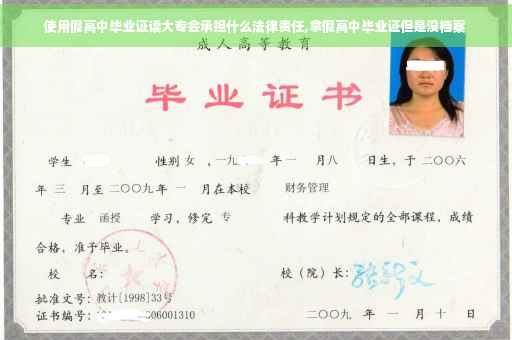 使用假高中毕业证读大专会承担什么法律责任,拿假高中毕业证但是没档案
成人高等教育
毕业证书
学生 性别 女 ，一九 年 一 月八 日生，于 二〇〇六
年 三 月至 二〇〇九 年 一 月在本校 财务管理
专业 函授 学习，修完 专 科教学计划规定的全部课程，成绩
合格，准予毕业。
校 名： 校（院）长：
批准文号：教计[1998]33号
证书编号： 06001310 二〇〇九 年 一 月 十 日